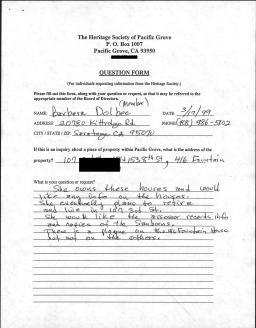 The Heritage Society of Pacific Grove
P. O. Box 1007
Pacific Grove, CA 93950
QUESTION FORM
(For individuals requesting information from the Heritage Society.)
Please fill out this form, along with your question or request, so that it may be referred to the
appropriate member of the Board of Directors.
(Member)
NAME Barbara Dolbec DATE 3/7/99
ADDRESS 20980 Kittridge Rd PHONE (408)
CITY / STATE / ZIP Saratoga CA 95070
If this is an inquiry about a piece of property within Pacific Grove, what is the address of the
property? 107 153 8th St, 416 Fountain
What is your question or request?
She owns these houses and would
like any info on the houses.
She eventually plans to retire
and live in 107 3rd St.
She would like the assessor records info
and copies of the Sanborns.
There is a plaque on the 416 Fountain House
but not on the others.